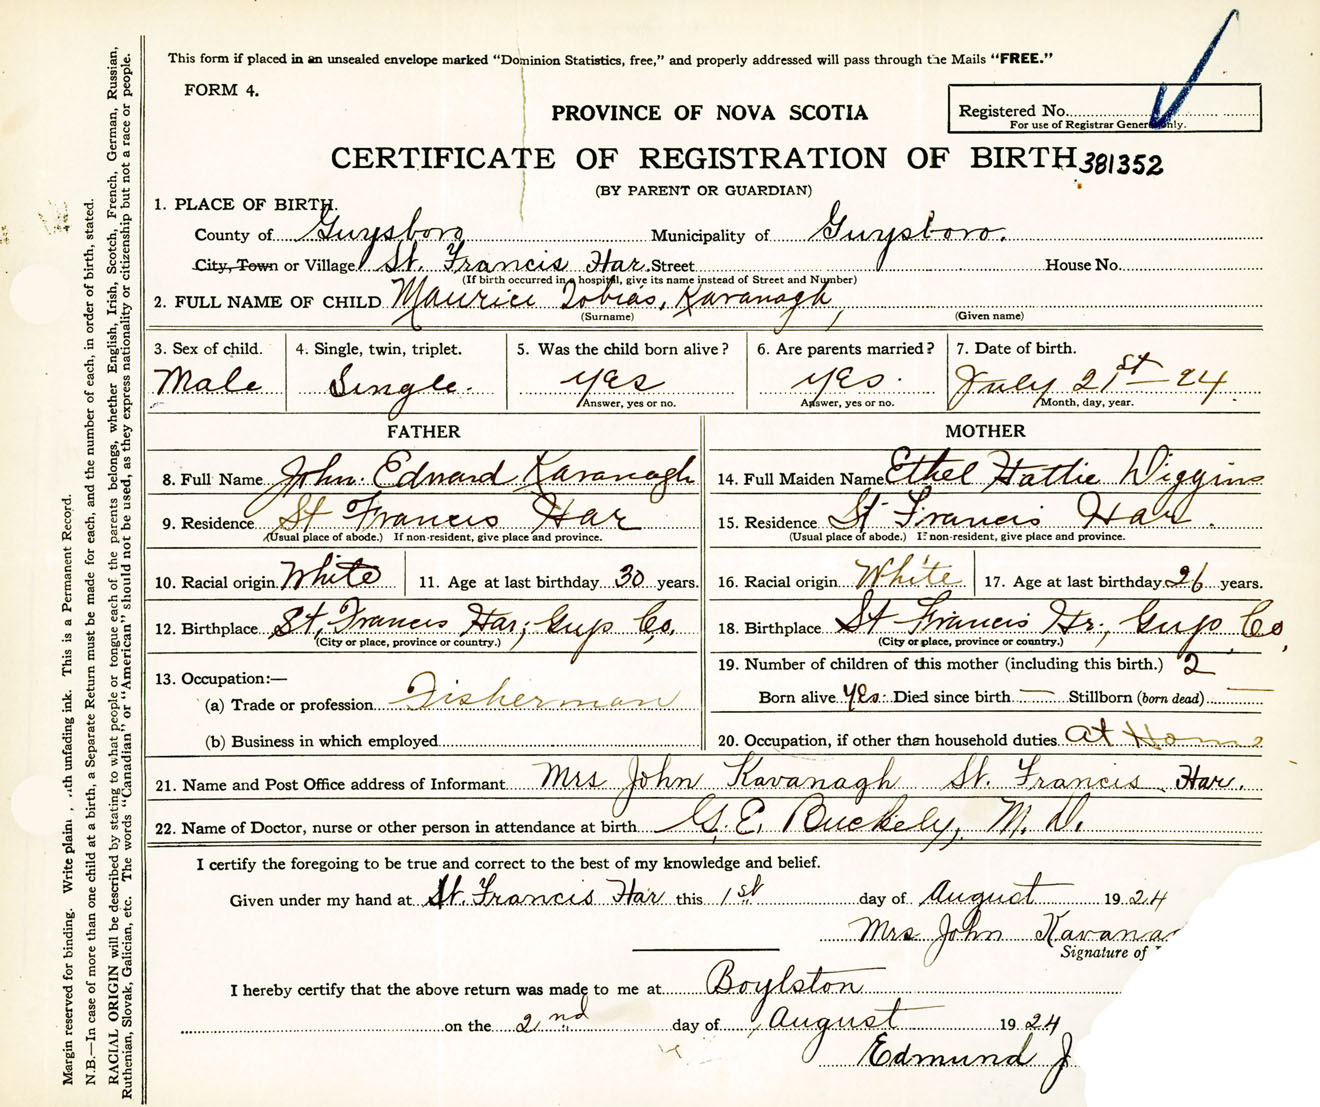 This form if placed in an unsealed envelope marked "Dominion Statistics, free," and properly addressed will pass through the Mails "FREE."
FORM 4.
PROVINCE OF NOVA SCOTIA
Registered No.
For use of Registrar General only.
CERTIFICATE OF REGISTRATION OF BIRTH 381352
(BY PARENT OR GUARDIAN)
1. PLACE OF BIRTH.
County of Guysboro Municipality of Guysboro.
City, Town or Village St. Francis Har. Street House No.
(If birth occurred in a hospital, give its name instead of Street and Number)
2. FULL NAME OF CHILD Maurice Tobias, Kavanagh,
(Surname) (Given name)
3. Sex of child. 4. Single, twin, triplet. 5. Was the child born alive? 6. Are parents married? 7. Date of birth.
Male Single. yes yes. July 21st - 24.
Answer, yes or no. Answer, yes or no. Month, day, year.
FATHER MOTHER
8. Full Name John Edward Kavanagh 14. Full Maiden Name Ethel Hattie Wiggins
9. Residence St Francis Har 15. Residence St Francis Har.
(Usual place of abode.) If non-resident, give place and province. (Usual place of abode.) If non-resident, give place and province.
10. Racial origin White 11. Age at last birthday 30 years. 16. Racial origin White 17. Age at last birthday 26 years.
12. Birthplace St. Francis Har; Guys Co. 18. Birthplace St Francis Hr., Guys Co,
(City or place, province or country.) (City or place, province or country.)
13. Occupation:— 19. Number of children of this mother (including this birth.) 2
(a) Trade or profession Fisherman Born alive yes. Died since birth — Stillborn (born dead) —
(b) Business in which employed 20. Occupation, if other than household duties at Home
21. Name and Post Office address of Informant Mrs John Kavanagh St. Francis Har.
22. Name of Doctor, nurse or other person in attendance at birth G. E. Buckely, M. D.
I certify the foregoing to be true and correct to the best of my knowledge and belief.
Given under my hand at St. Francis Har this 1st day of August 1924
Mrs John Kavana
Signature of
I hereby certify that the above return was made to me at Boylston
on the 2nd day of August 1924
Edmund J
Margin reserved for binding. Write plain with unfading ink. This is a Permanent Record.
N.B.—In case of more than one child at a birth, a Separate Return must be made for each, and the number of each, in order of birth, stated.
RACIAL ORIGIN will be described by stating to what people or tongue each of the parents belongs, whether English, Irish, Scotch, French, German, Russian,
Ruthenian, Slovak, Galician, etc. The words "Canadian" or "American" should not be used, as they express nationality or citizenship but not a race or people.